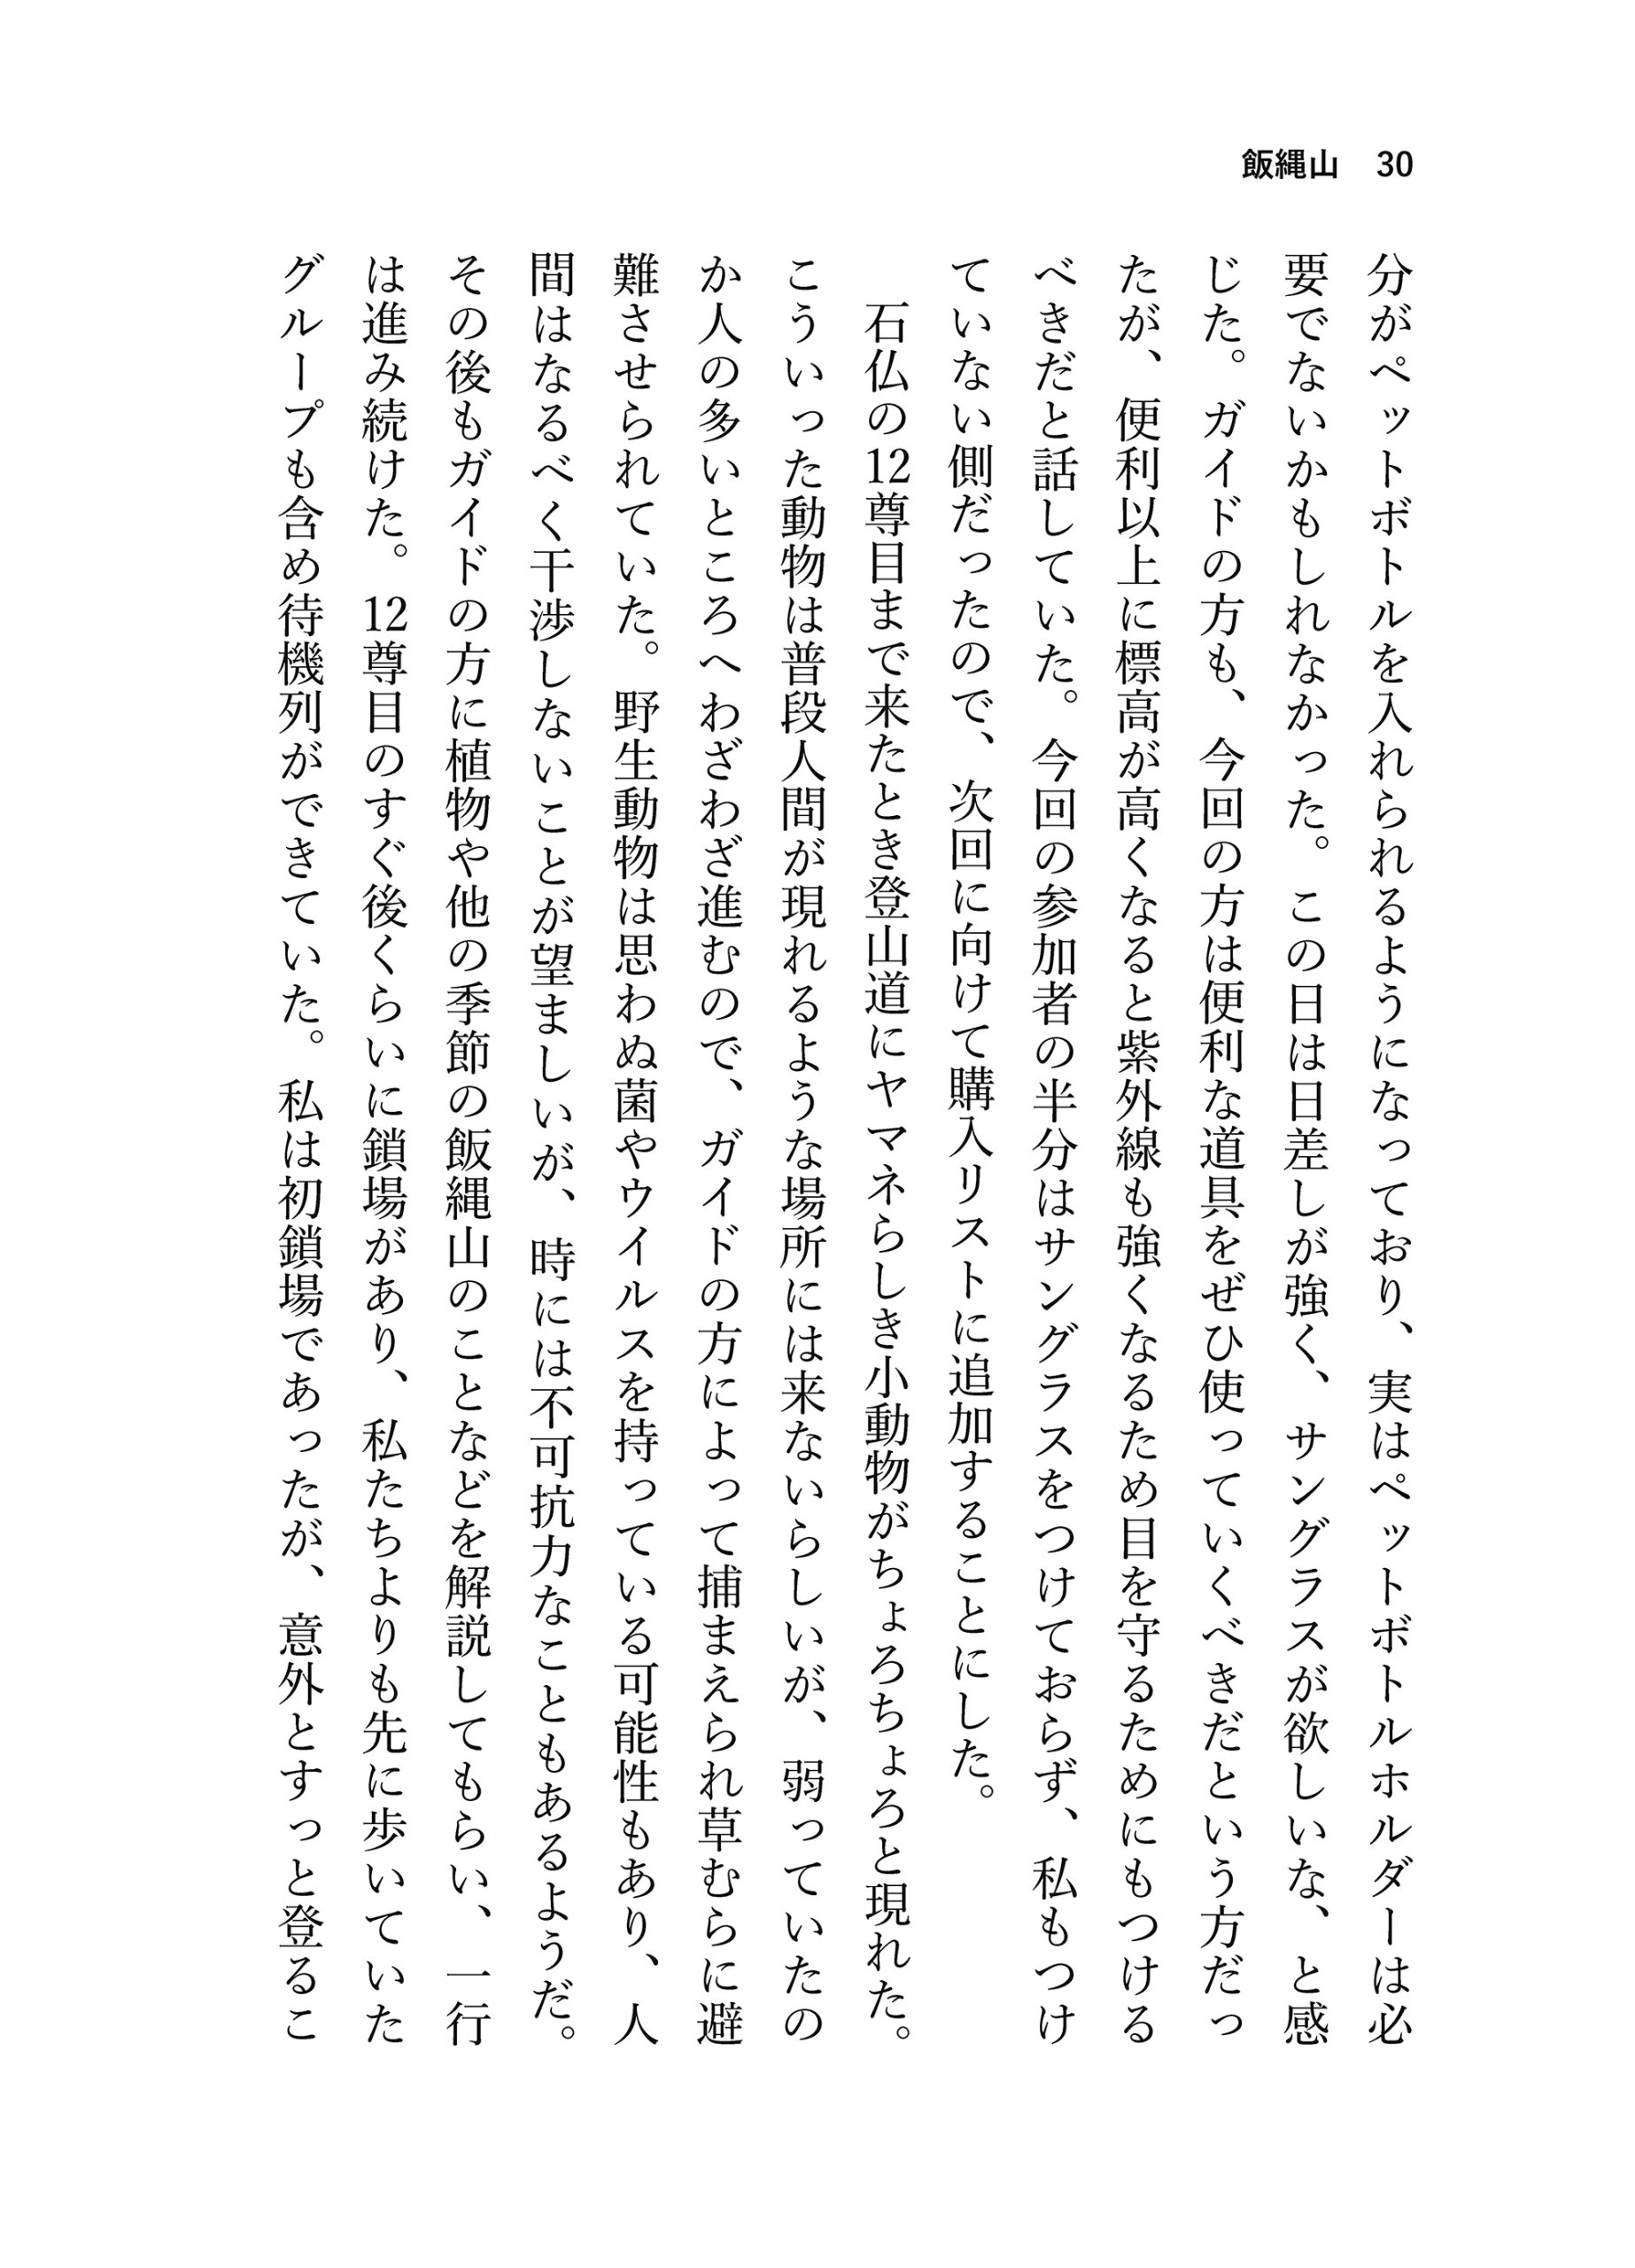 飯縄山　30
分がペットボトルを入れられるようになっており、実はペットボトルホルダーは必
要でないかもしれなかった。この日は日差しが強く、サングラスが欲しいな、と感
じた。ガイドの方も、今回の方は便利な道具をぜひ使っていくべきだという方だっ
たが、便利以上に標高が高くなると紫外線も強くなるため目を守るためにもつける
べきだと話していた。今回の参加者の半分はサングラスをつけておらず、私もつけ
ていない側だったので、次回に向けて購入リストに追加することにした。
　石仏の12尊目まで来たとき登山道にヤマネらしき小動物がちょろちょろと現れた。
こういった動物は普段人間が現れるような場所には来ないらしいが、弱っていたの
か人の多いところへわざわざ進むので、ガイドの方によって捕まえられ草むらに避
難させられていた。野生動物は思わぬ菌やウイルスを持っている可能性もあり、人
間はなるべく干渉しないことが望ましいが、時には不可抗力なこともあるようだ。
その後もガイドの方に植物や他の季節の飯縄山のことなどを解説してもらい、一行
は進み続けた。12尊目のすぐ後くらいに鎖場があり、私たちよりも先に歩いていた
グループも含め待機列ができていた。私は初鎖場であったが、意外とすっと登るこ